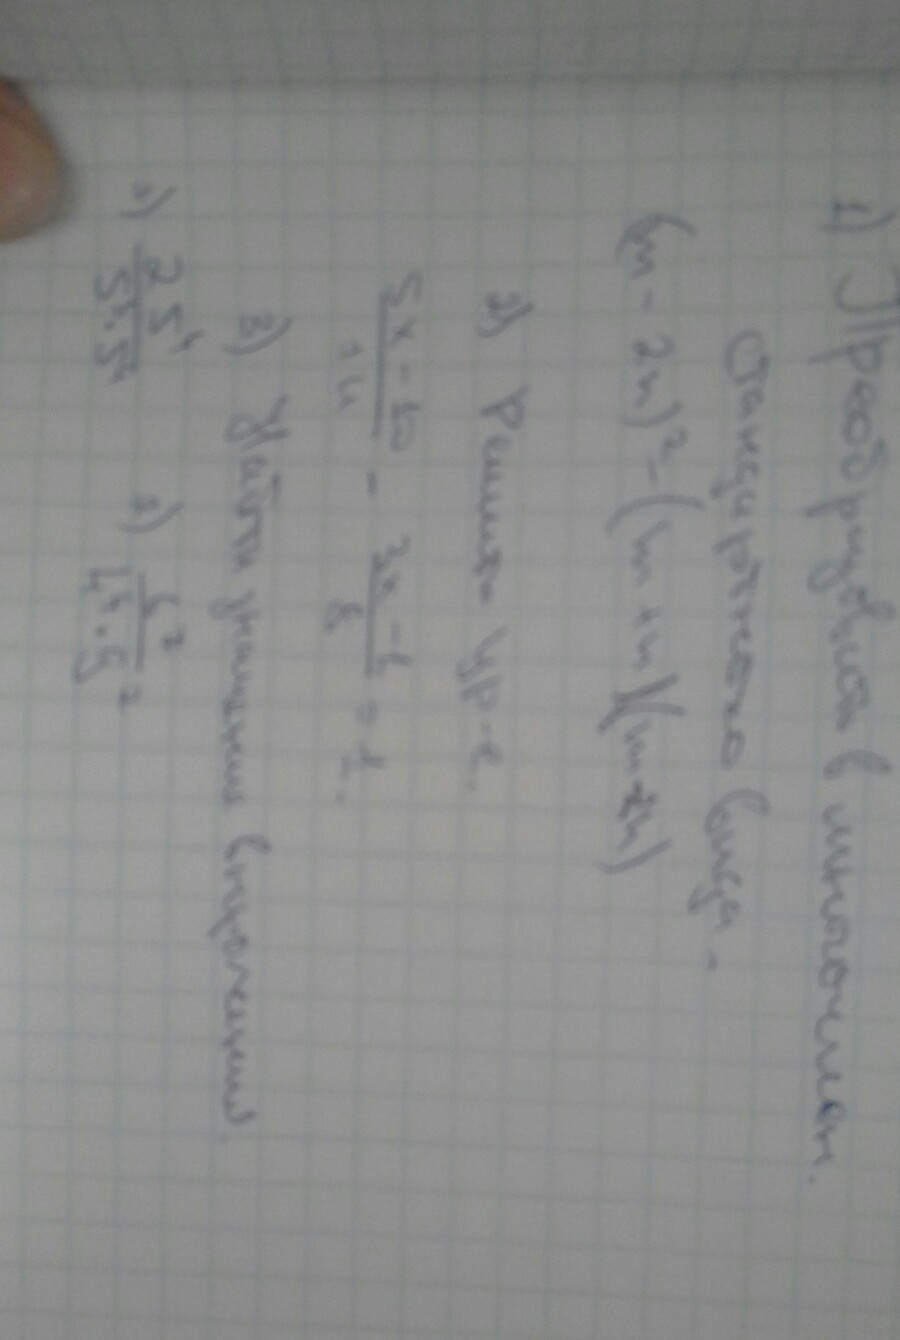 1) Преобразовать в многочлен.
стандартного вида -
(m - 2n)² - (m + n)(m - n)
2) Решить ур-е.
5x - 10 / 14 - 3x - 6 / 8 = 1.
3) Найти значение выражения.
1) 25⁴ / 5⁴ · 5 2) 6⁷ / 4⁴ · 9²